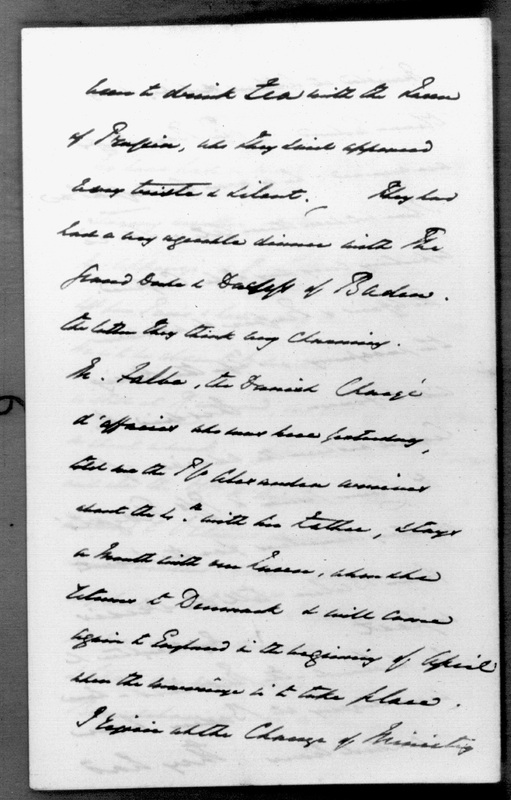 been to drink tea with the Queen
of Prussia, who they said appeared
very triste & silent. They had
had a very agreeable dinner with The
Grand Duke & Duchess of Baden.
the latter they think very Charming.
M. Falbe, the Danish Chargé
d'affaires who was here yesterday,
told me the Pss Alexandra arrives
about the 4th with her Father, stays
a Month with our Queen, when she
returns to Denmark & will come
again to England in the beginning of April
when the marriage is to take place.
I rejoice at the Change of Ministry